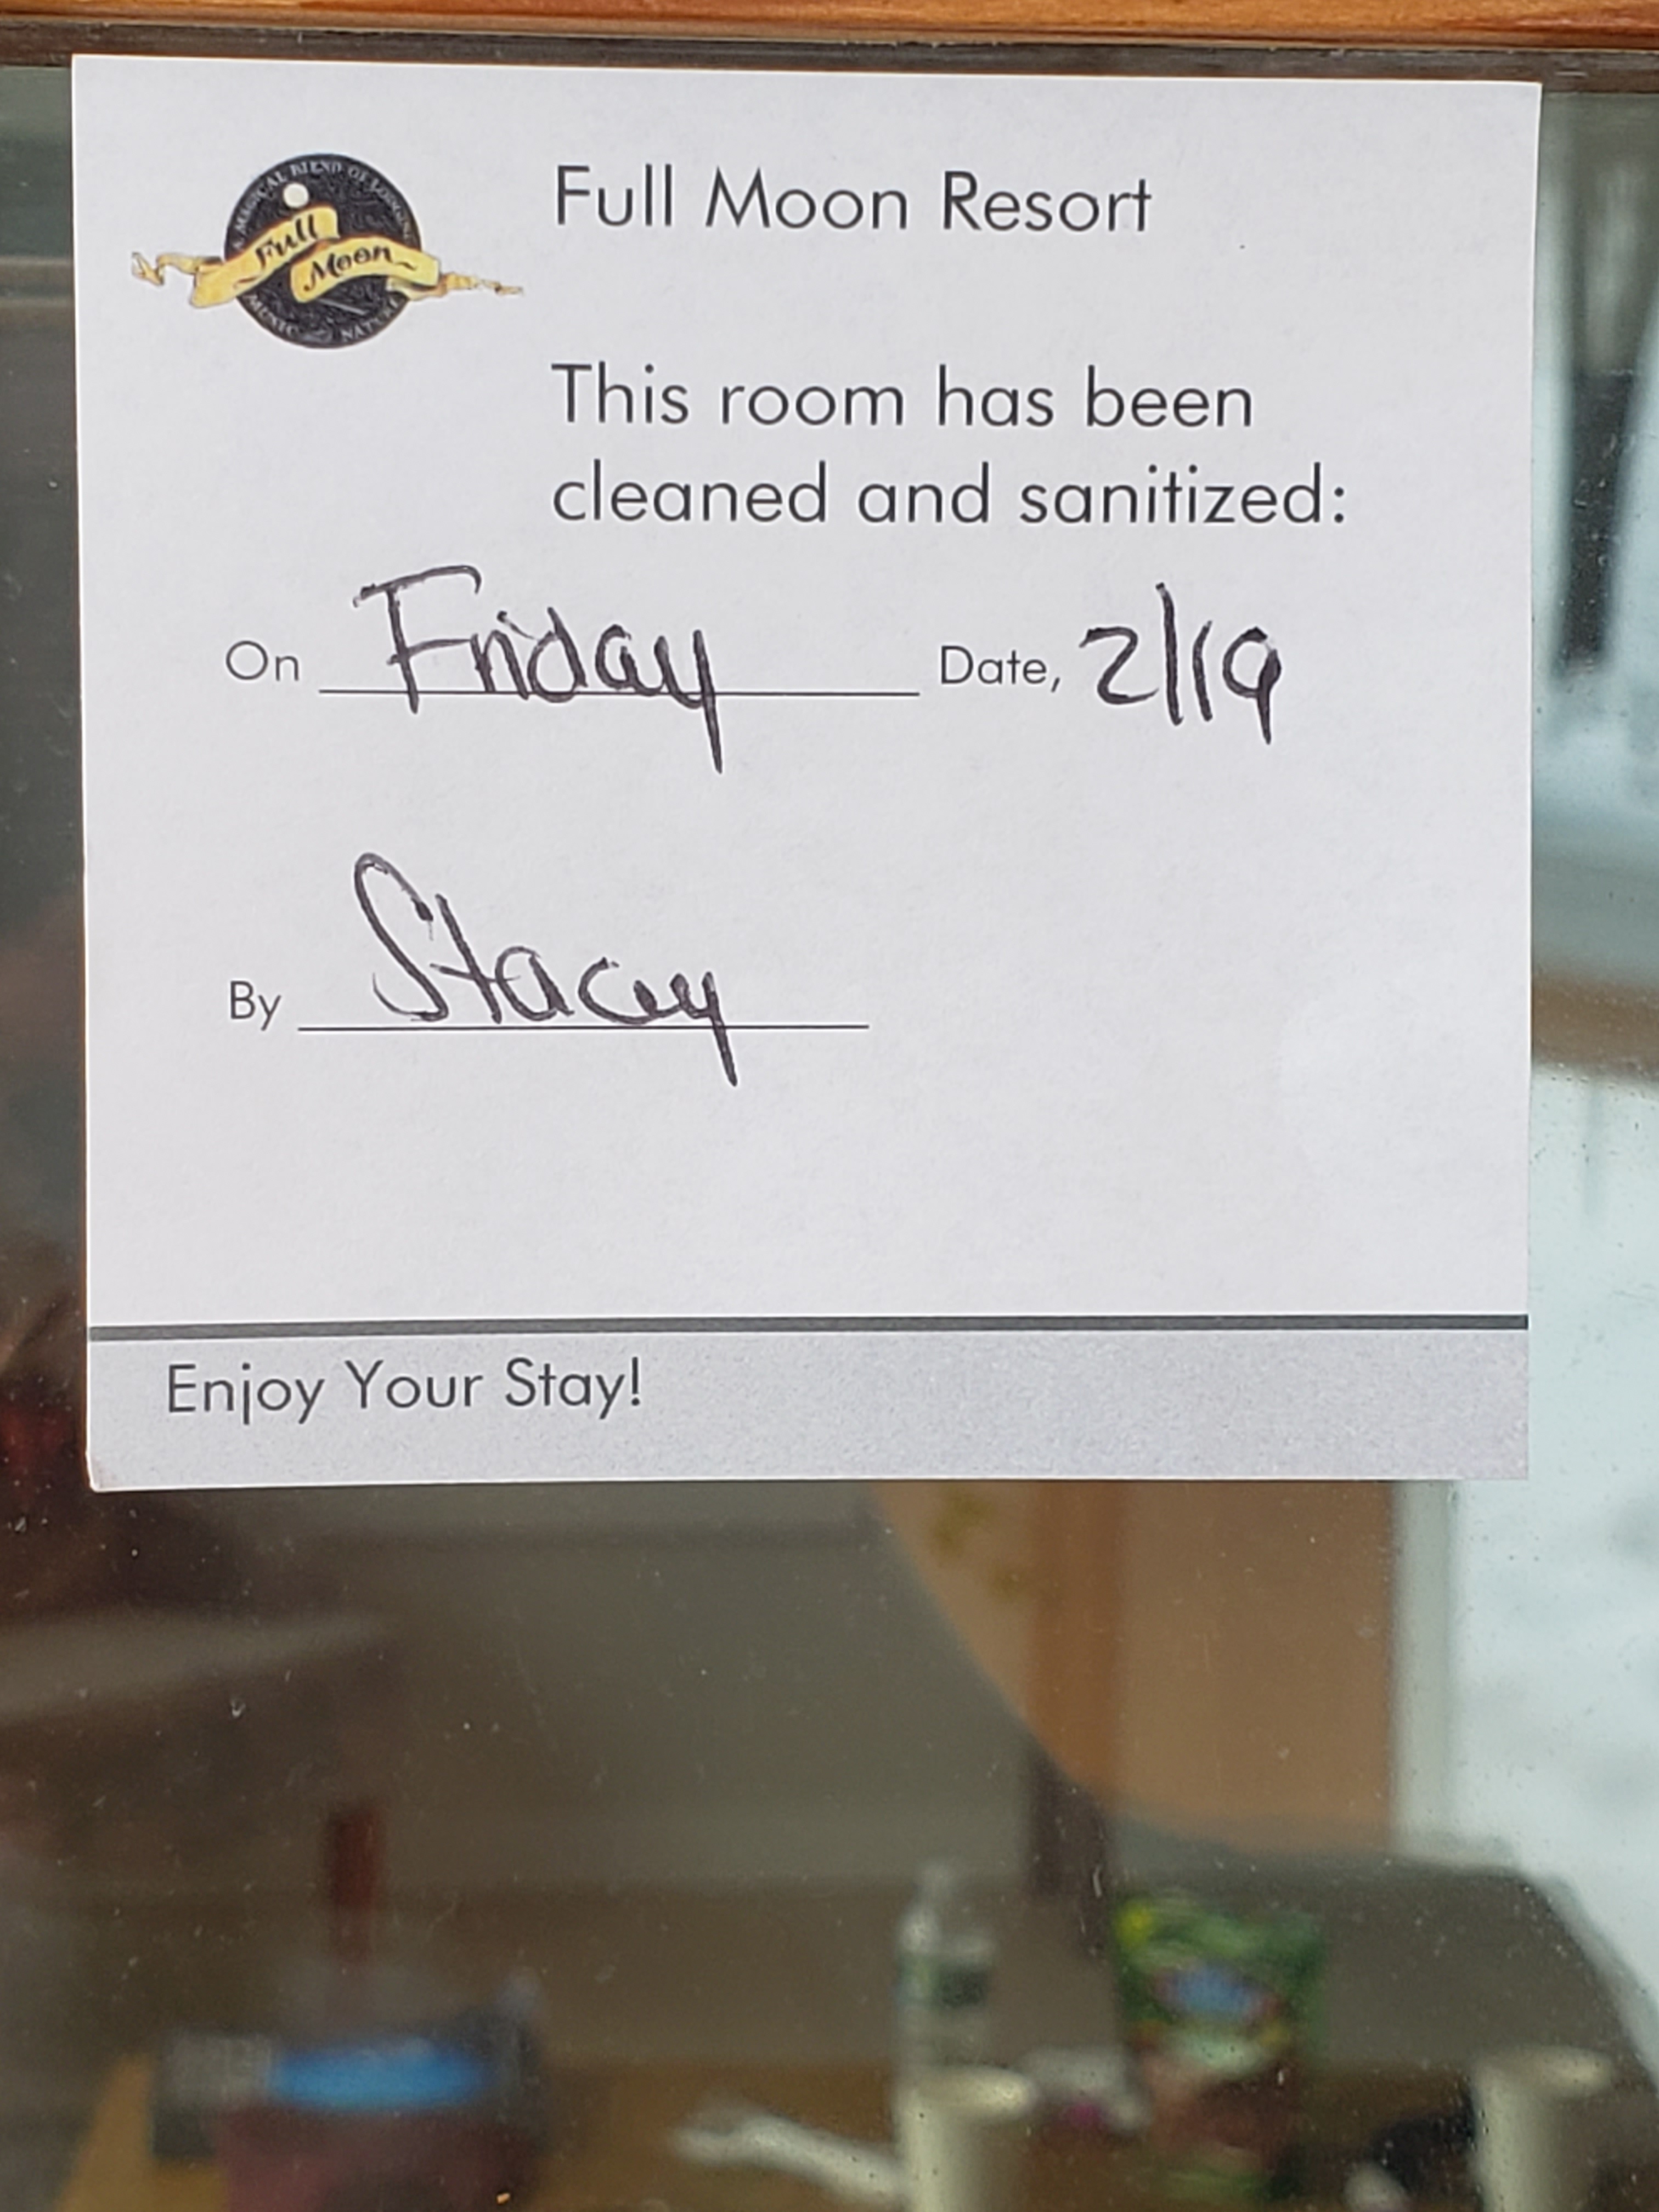 Full Moon Resort
A MAGICAL BLEND OF
Full
Moon
MUSIC AND NATURE
This room has been
cleaned and sanitized:
On Friday Date, 2/19
By Stacey
Enjoy Your Stay!